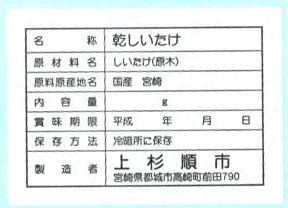 名称 乾しいたけ
原材料名 しいたけ(原木)
原料原産地名 国産 宮崎
内容量 g
賞味期限 平成 年 月 日
保存方法 冷暗所に保存
製造者 上杉順市
宮崎県都城市高崎町前田790